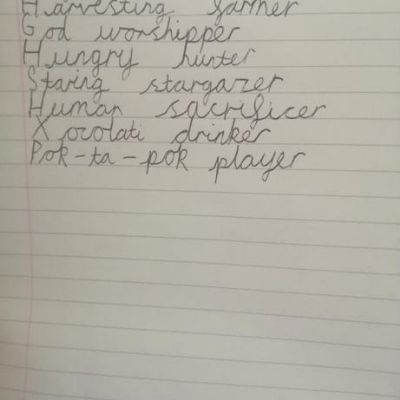 Harvesting farmer
God worshipper
Hungry hunter
Staring stargazer
Human sacrificer
Xocolati drinker
Pok-ta-pok player